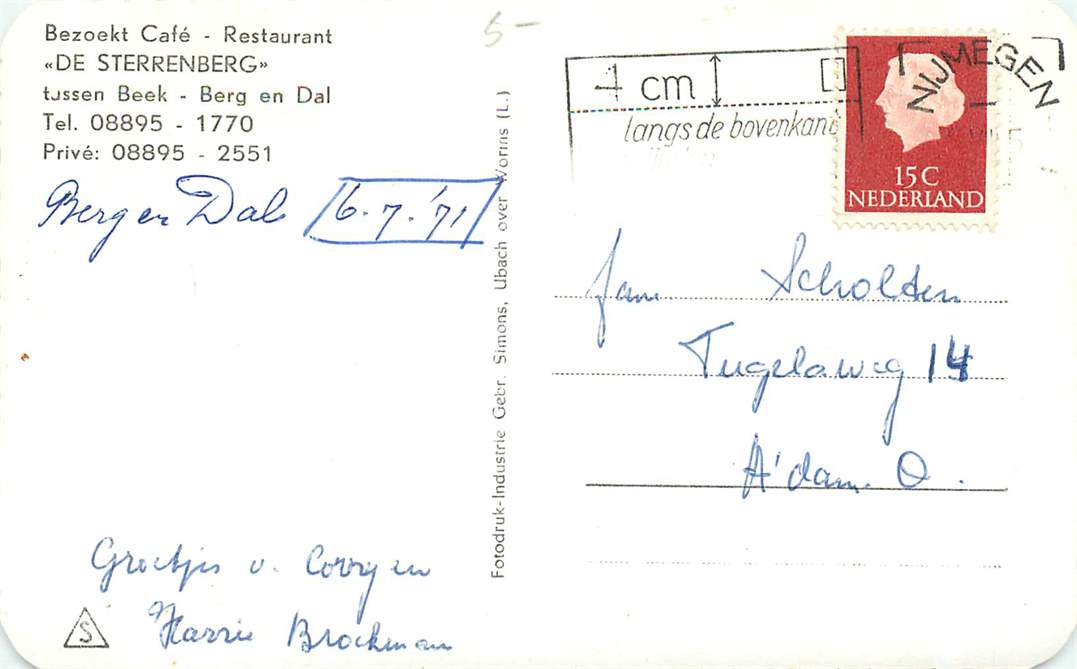 Bezoekt Café - Restaurant
«DE STERRENBERG»
tussen Beek - Berg en Dal
Tel. 08895 - 1770
Privé: 08895 - 2551
Berg en Dal 6-7-'71
Groetjes v. Corry en
Harrie Brockman
S
Fotodruk-Industrie Gebr. Simons, Ubach over Worms (L.)
5-
4 cm
langs de bovenkant
NIJMEGEN
15 C
NEDERLAND
Jan Scholten
Tugelaweg 14
A'dam. O.